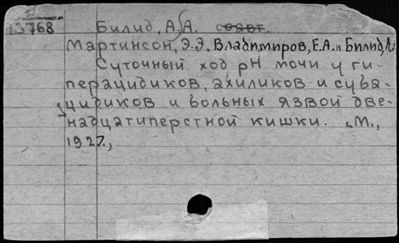 13768 Билид, А.А. соавт.
Мартинсон, Э.Э., Владимиров, Е.А. и Билид, А.
Суточный ход рН мочи у ги-
перацидиков, ахиликов и суба-
цидиков и больных язвой две-
надцатиперстной кишки. „М.,
1927.,